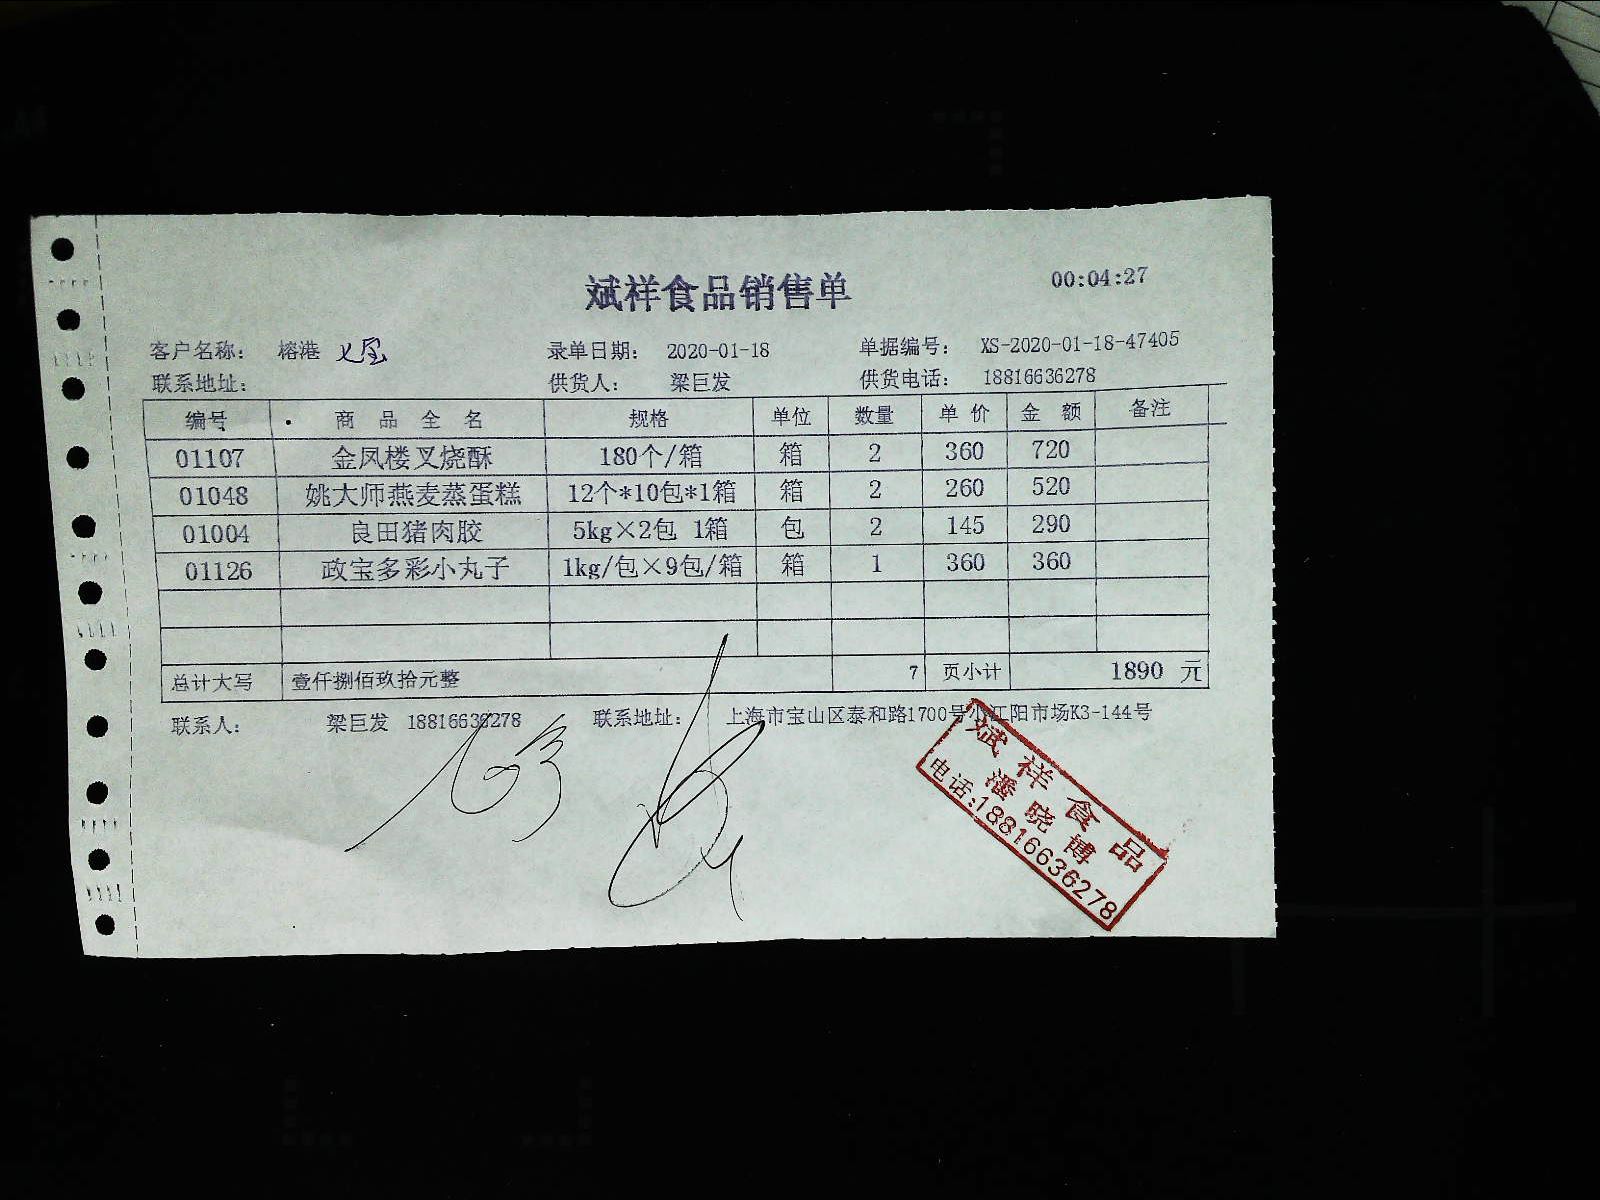 斌祥食品销售单 00:04:27
客户名称： 榕港 七宝 录单日期： 2020-01-18 单据编号： XS-2020-01-18-47405
联系地址： 供货人： 梁巨发 供货电话： 18816636278
编号 商品全名 规格 单位 数量 单价 金额 备注
01107 金凤楼叉烧酥 180个/箱 箱 2 360 720
01048 姚大师燕麦蒸蛋糕 12个*10包*1箱 箱 2 260 520
01004 良田猪肉胶 5kg×2包 1箱 包 2 145 290
01126 政宝多彩小丸子 1kg/包×9包/箱 箱 1 360 360
总计大写 壹仟捌佰玖拾元整 7 页小计 1890 元
联系人： 梁巨发 18816636278 联系地址： 上海市宝山区泰和路1700号小江阳市场K3-144号
斌祥食品
潘晓博
电话:18816636278